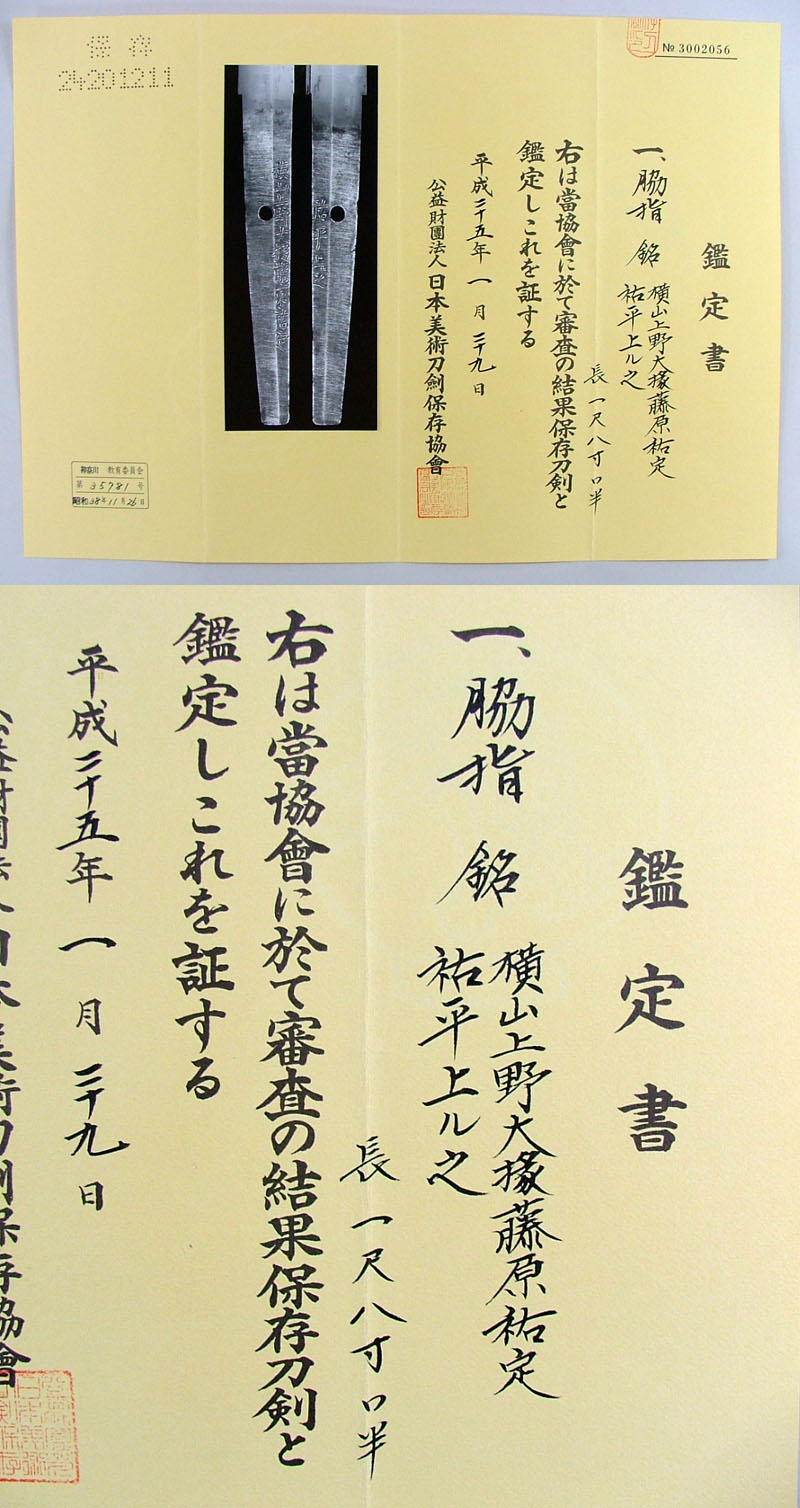 № 3002056
鑑定書
一、脇指 銘 横山上野大掾藤原祐定
祐平上ル之
長一尺八寸口半
右は當協會に於て審査の結果保存刀剣と
鑑定しこれを証する
平成二十五年一月二十九日
公益財團法人日本美術刀劍保存協會
保存
24201211
神奈川 教育委員会
第 35781 号
昭和38年11月26日
鑑定書
一、脇指 銘 横山上野大掾藤原祐定
祐平上ル之
長一尺八寸口半
右は當協會に於て審査の結果保存刀剣と
鑑定しこれを証する
平成二十五年一月二十九日
公益財團法人日本美術刀劍保存協會